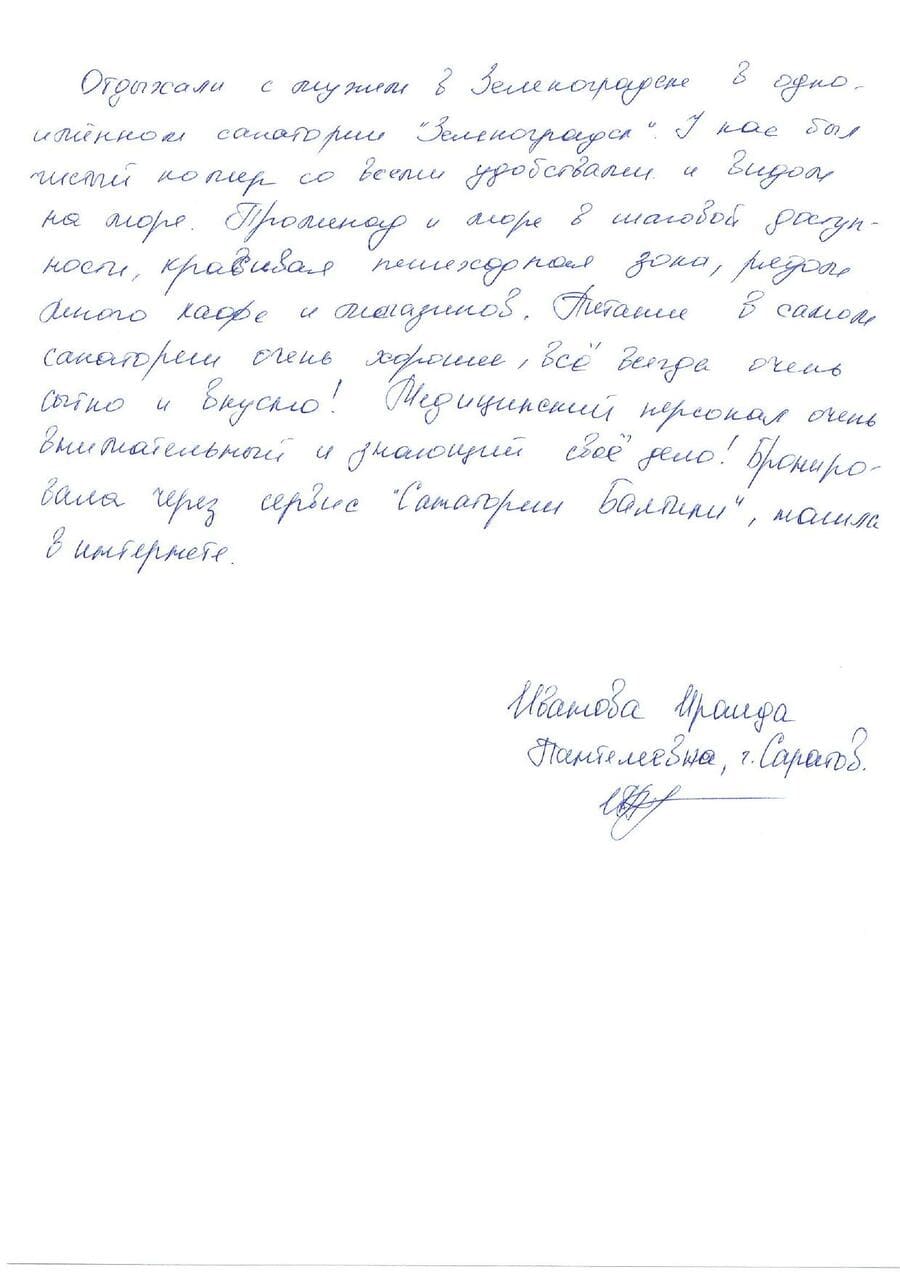 Отдыхали с мужем в Зеленоградске в одно-
имённом санатории "Зеленоградск". У нас был
чистый номер со всеми удобствами и видом
на море. Променад и море в шаговой доступ-
ности, красивая пешеходная зона, рядом
много кафе и магазинов. Питание в самом
санатории очень хорошее, всё всегда очень
сытно и вкусно! Медицинский персонал очень
внимательный и знающий своё дело! Брониро-
вала через сервис "Санатории Балтики", нашла
в интернете.
Иванова Ираида
Пантелеевна, г. Саратов.